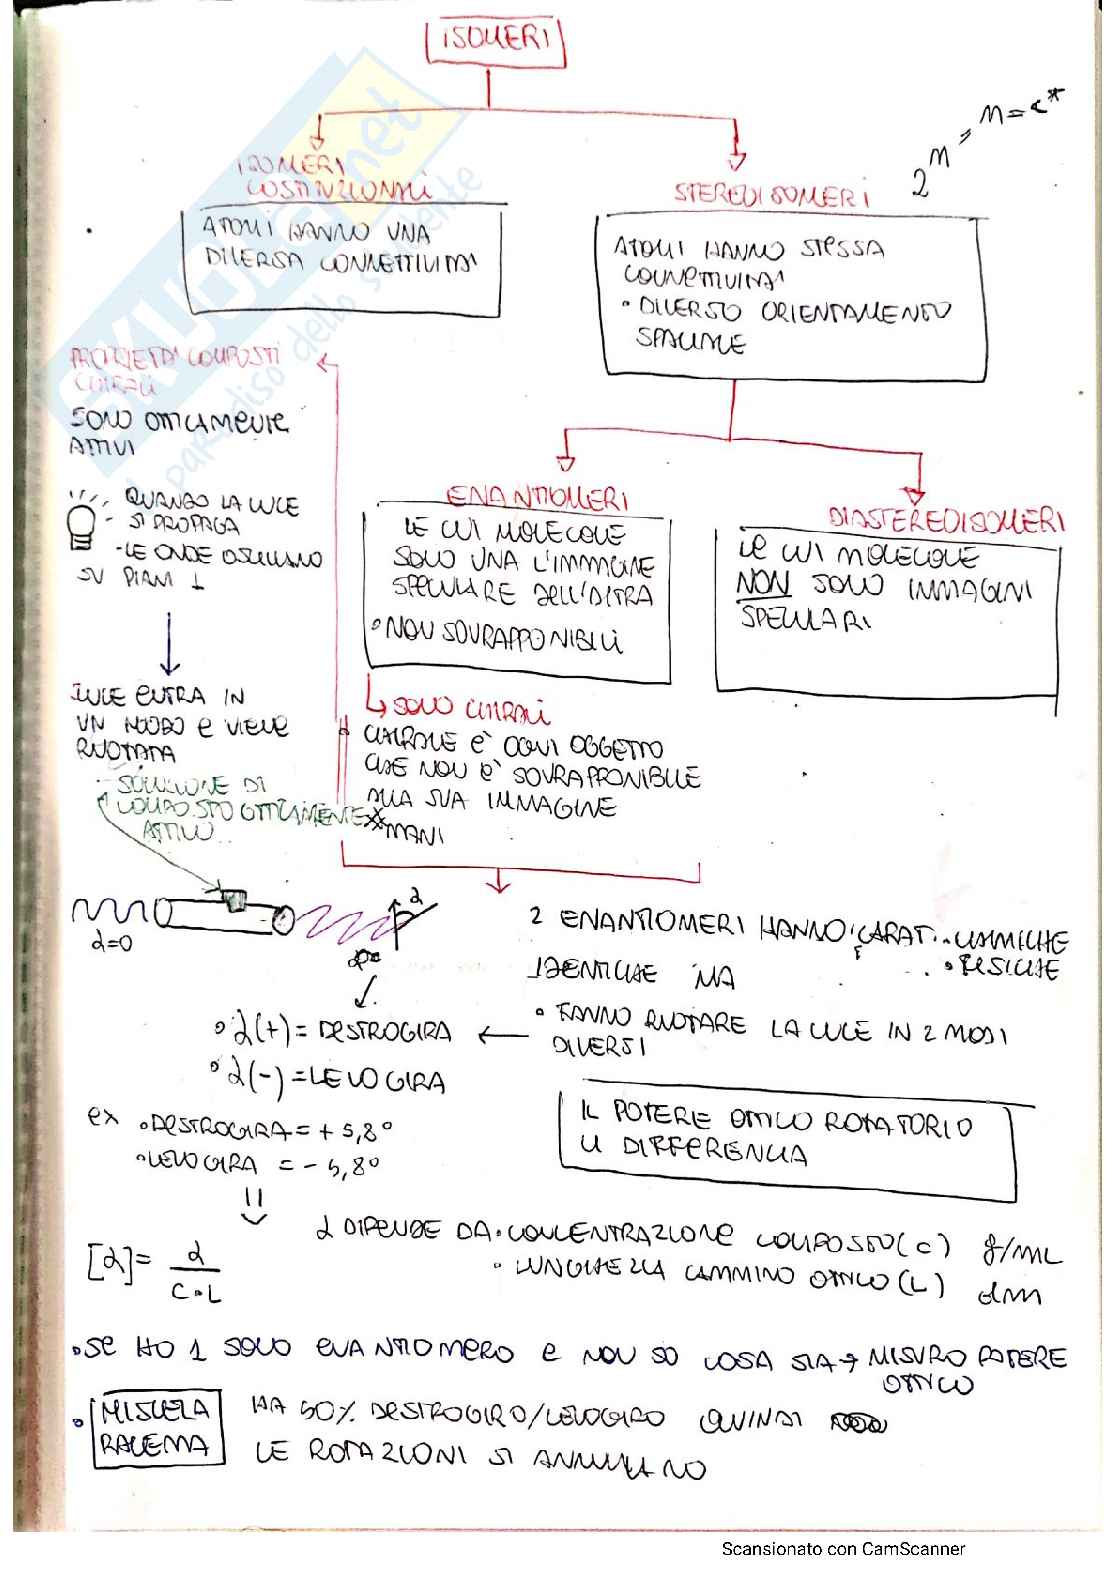 ISOMERI
2^n = n = C*
ISOMERI
COSTITUZIONALI
ATOMI HANNO UNA
DIVERSA CONNETTIVITA'
STEREOISOMERI
ATOMI HANNO STESSA
CONNETTIVITA'
• DIVERSO ORIENTAMENTO
SPAZIALE
PROPRIETA' COMPOSTI
CHIRALI
SONO OTTICAMENTE
ATTIVI
QUANDO LA LUCE
SI PROPAGA
- LE ONDE OSCILLANO
SU PIANI ⊥
LUCE ENTRA IN
UN MODO E VIENE
RUOTATA
- SOLUZIONE DI
COMPOSTO OTTICAMENTE
ATTIVO..
ENANTIOMERI
LE CUI MOLECOLE
SONO UNA L'IMMAGINE
SPECULARE DELL'ALTRA
• NON SOVRAPPONIBILI
DIASTEREOISOMERI
LE CUI MOLECOLE
NON SONO IMMAGINI
SPECULARI
↳ SONO CHIRALI
CHIRALE E' OGNI OGGETTO
CHE NON E' SOVRAPPONIBILE
ALLA SUA IMMAGINE
MANI
α=0
α
2 ENANTIOMERI HANNO CARAT. • CHIMICHE
• FISICHE
IDENTICHE MA
• FANNO RUOTARE LA LUCE IN 2 MODI
DIVERSI
• α(+) = DESTROGIRA
• α(-) = LEVOGIRA
ex • DESTROGIRA = + 5,8°
• LEVOGIRA = - 5,8°
IL POTERE OTTICO ROTATORIO
LI DIFFERENZIA
α DIPENDE DA • CONCENTRAZIONE COMPOSTO (C) g/mL
• LUNGHEZZA CAMMINO OTTICO (L) dm
[α] = α / C • L
• SE HO 1 SOLO ENANTIOMERO E NON SO COSA SIA → MISURO POTERE
OTTICO
• MISCELA
RACEMA
HA 50% DESTROGIRO/LEVOGIRO QUINDI
LE ROTAZIONI SI ANNULLANO
SKUOLA.net
il paradiso dello studente
Scansionato con CamScanner